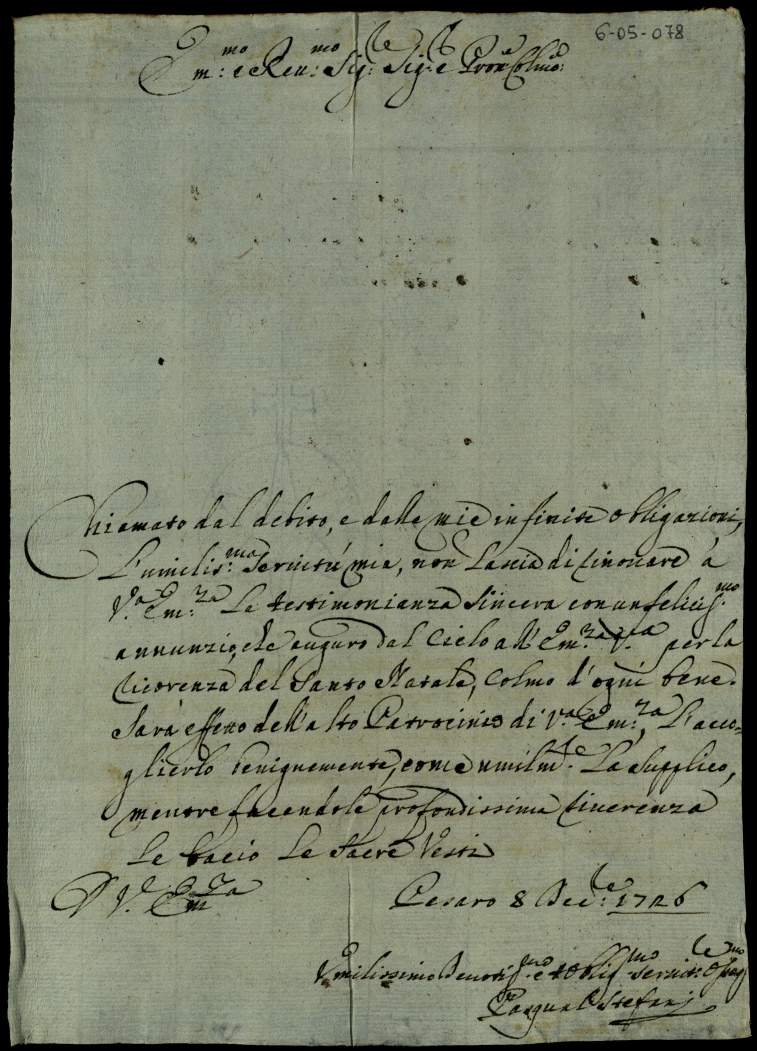 6-05-078
Em:mo e Reu:mo Sig:re Sig:re e Pron Colmo:
Chiamato dal debito, e dalle mie infinite obligazioni,
L'umilis:ma seruitù mia, non Lascia di rinouare à
V.a Em:za Le testimonianza sincera con un felicis:mo
annunzio, che auguro dal Cielo all' Em:za V.a per la
ricorenza del Santo Natale, Colmo d'ogni bene.
Sarà effetto dell'alto Patrocinio di V.a Em:za, L'acco-
glierlo benignemente, come umilm.te La supplico,
mentre facendole profondissima riuerenza
Le bacio Le Sacre Vesti
D V.a Em:za
Pesaro 8 Dec:re 1726
Vmilissimo Deuotis:mo et Obligmo seruit:re Osseqmo
Pasqual Stefani